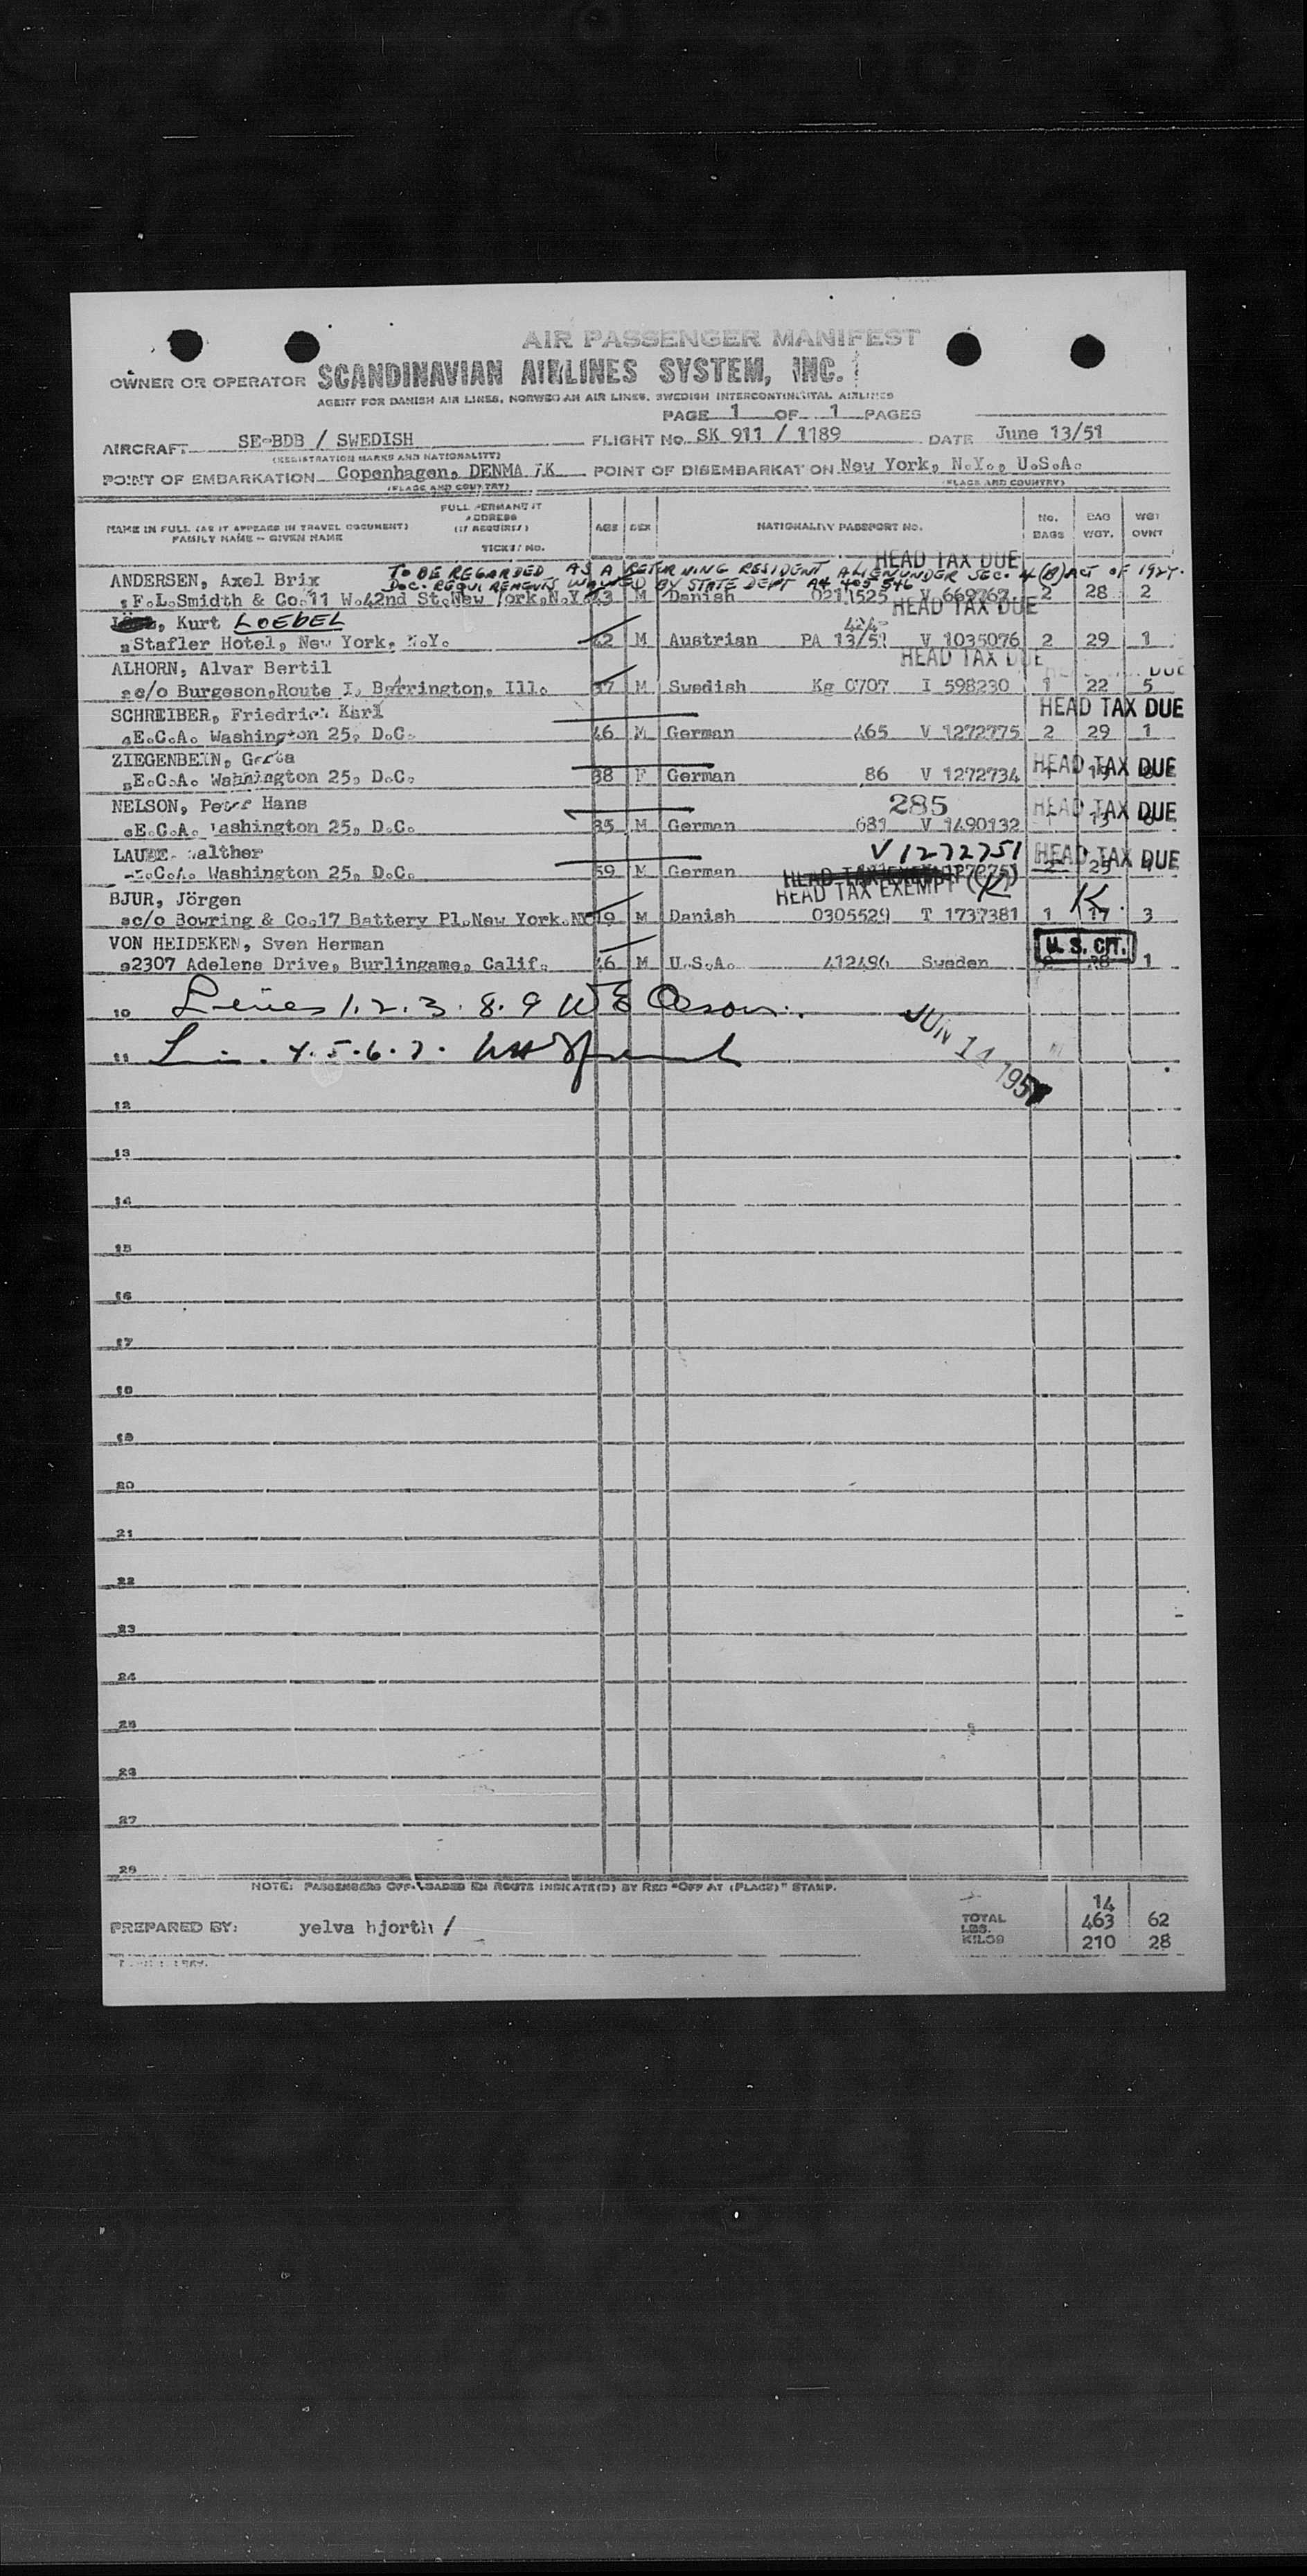 AIR PASSENGER MANIFEST
OWNER OR OPERATOR SCANDINAVIAN AIRLINES SYSTEM, INC.
AGENT FOR DANISH AIR LINES, NORWEGIAN AIR LINES, SWEDISH INTERCONTINENTAL AIRLINES
PAGE 1 OF 1 PAGES
AIRCRAFT SE-BDB / SWEDISH FLIGHT No. SK 911 / 1189 DATE June 13/51
(REGISTRATION MARKS AND NATIONALITY)
POINT OF EMBARKATION Copenhagen, DENMARK POINT OF DISEMBARKATION New York, N.Y., U.S.A.
(PLACE AND COUNTRY) (PLACE AND COUNTRY)
NAME IN FULL (AS IT APPEARS IN TRAVEL DOCUMENT) FAMILY NAME - GIVEN NAME FULL PERMANENT ADDRESS (IF REQUIRED) TICKET NO. AGE SEX NATIONALITY PASSPORT NO. No. BAGS BAG WGT. WGT OVWT
HEAD TAX DUE
TO BE REGARDED AS A RETURNING RESIDENT ALIEN UNDER SEC. 4(B) ACT OF 1924.
ANDERSEN, Axel Brix DOC. REQUIREMENTS WAIVED BY STATE DEPT A4 405 546
F.L.Smidth & Co.11 W.42nd St.New York.N.Y. 43 M Danish 0211525 V 669767 2 28 2
HEAD TAX DUE
, Kurt LOEBEL 424
Statler Hotel, New York, N.Y. 42 M Austrian PA 13/51 V 1035076 2 29 1
HEAD TAX DUE
ALHORN, Alvar Bertil DUE
c/o Burgeson,Route I, Barrington, Ill. 37 M Swedish Kg 0707 I 598230 1 22 5
SCHREIBER, Friedrich Karl HEAD TAX DUE
E.C.A. Washington 25, D.C. 46 M German 465 V 1272775 2 29 1
ZIEGENBEIN, Greta HEAD TAX DUE
E.C.A. Washington 25, D.C. 38 F German 86 V 1272734 1 19
NELSON, Peter Hans 285 HEAD TAX DUE
E.C.A. Washington 25, D.C. 35 M German 681 V 1490132 1 13
LAUBE, Walther V 1272751 HEAD TAX DUE
E.C.A. Washington 25, D.C. 59 M German 2 25 4
HEAD TAX EXEMPT (K)
BJUR, Jörgen K.
c/o Bowring & Co.17 Battery Pl.New York.NY 19 M Danish 0305529 T 1737381 1 17 3
VON HEIDEKEN, Sven Herman U. S. CIT.
2307 Adelene Drive, Burlingame, Calif. 46 M U.S.A. 412496 Sweden 2 28 1
10 Lines 1. 2. 3. 8. 9
11 4. 5. 6. 7.
JUN 14 1951
12
13
14
15
16
17
18
19
20
21
22
23
24
25
26
27
28
NOTE: PASSENGERS OFF-LOADED EN ROUTE INDICATE(D) BY RED "OFF AT (PLACE)" STAMP.
14
PREPARED BY: yelva hjorth / TOTAL LBS. 463 62
KILOS 210 28